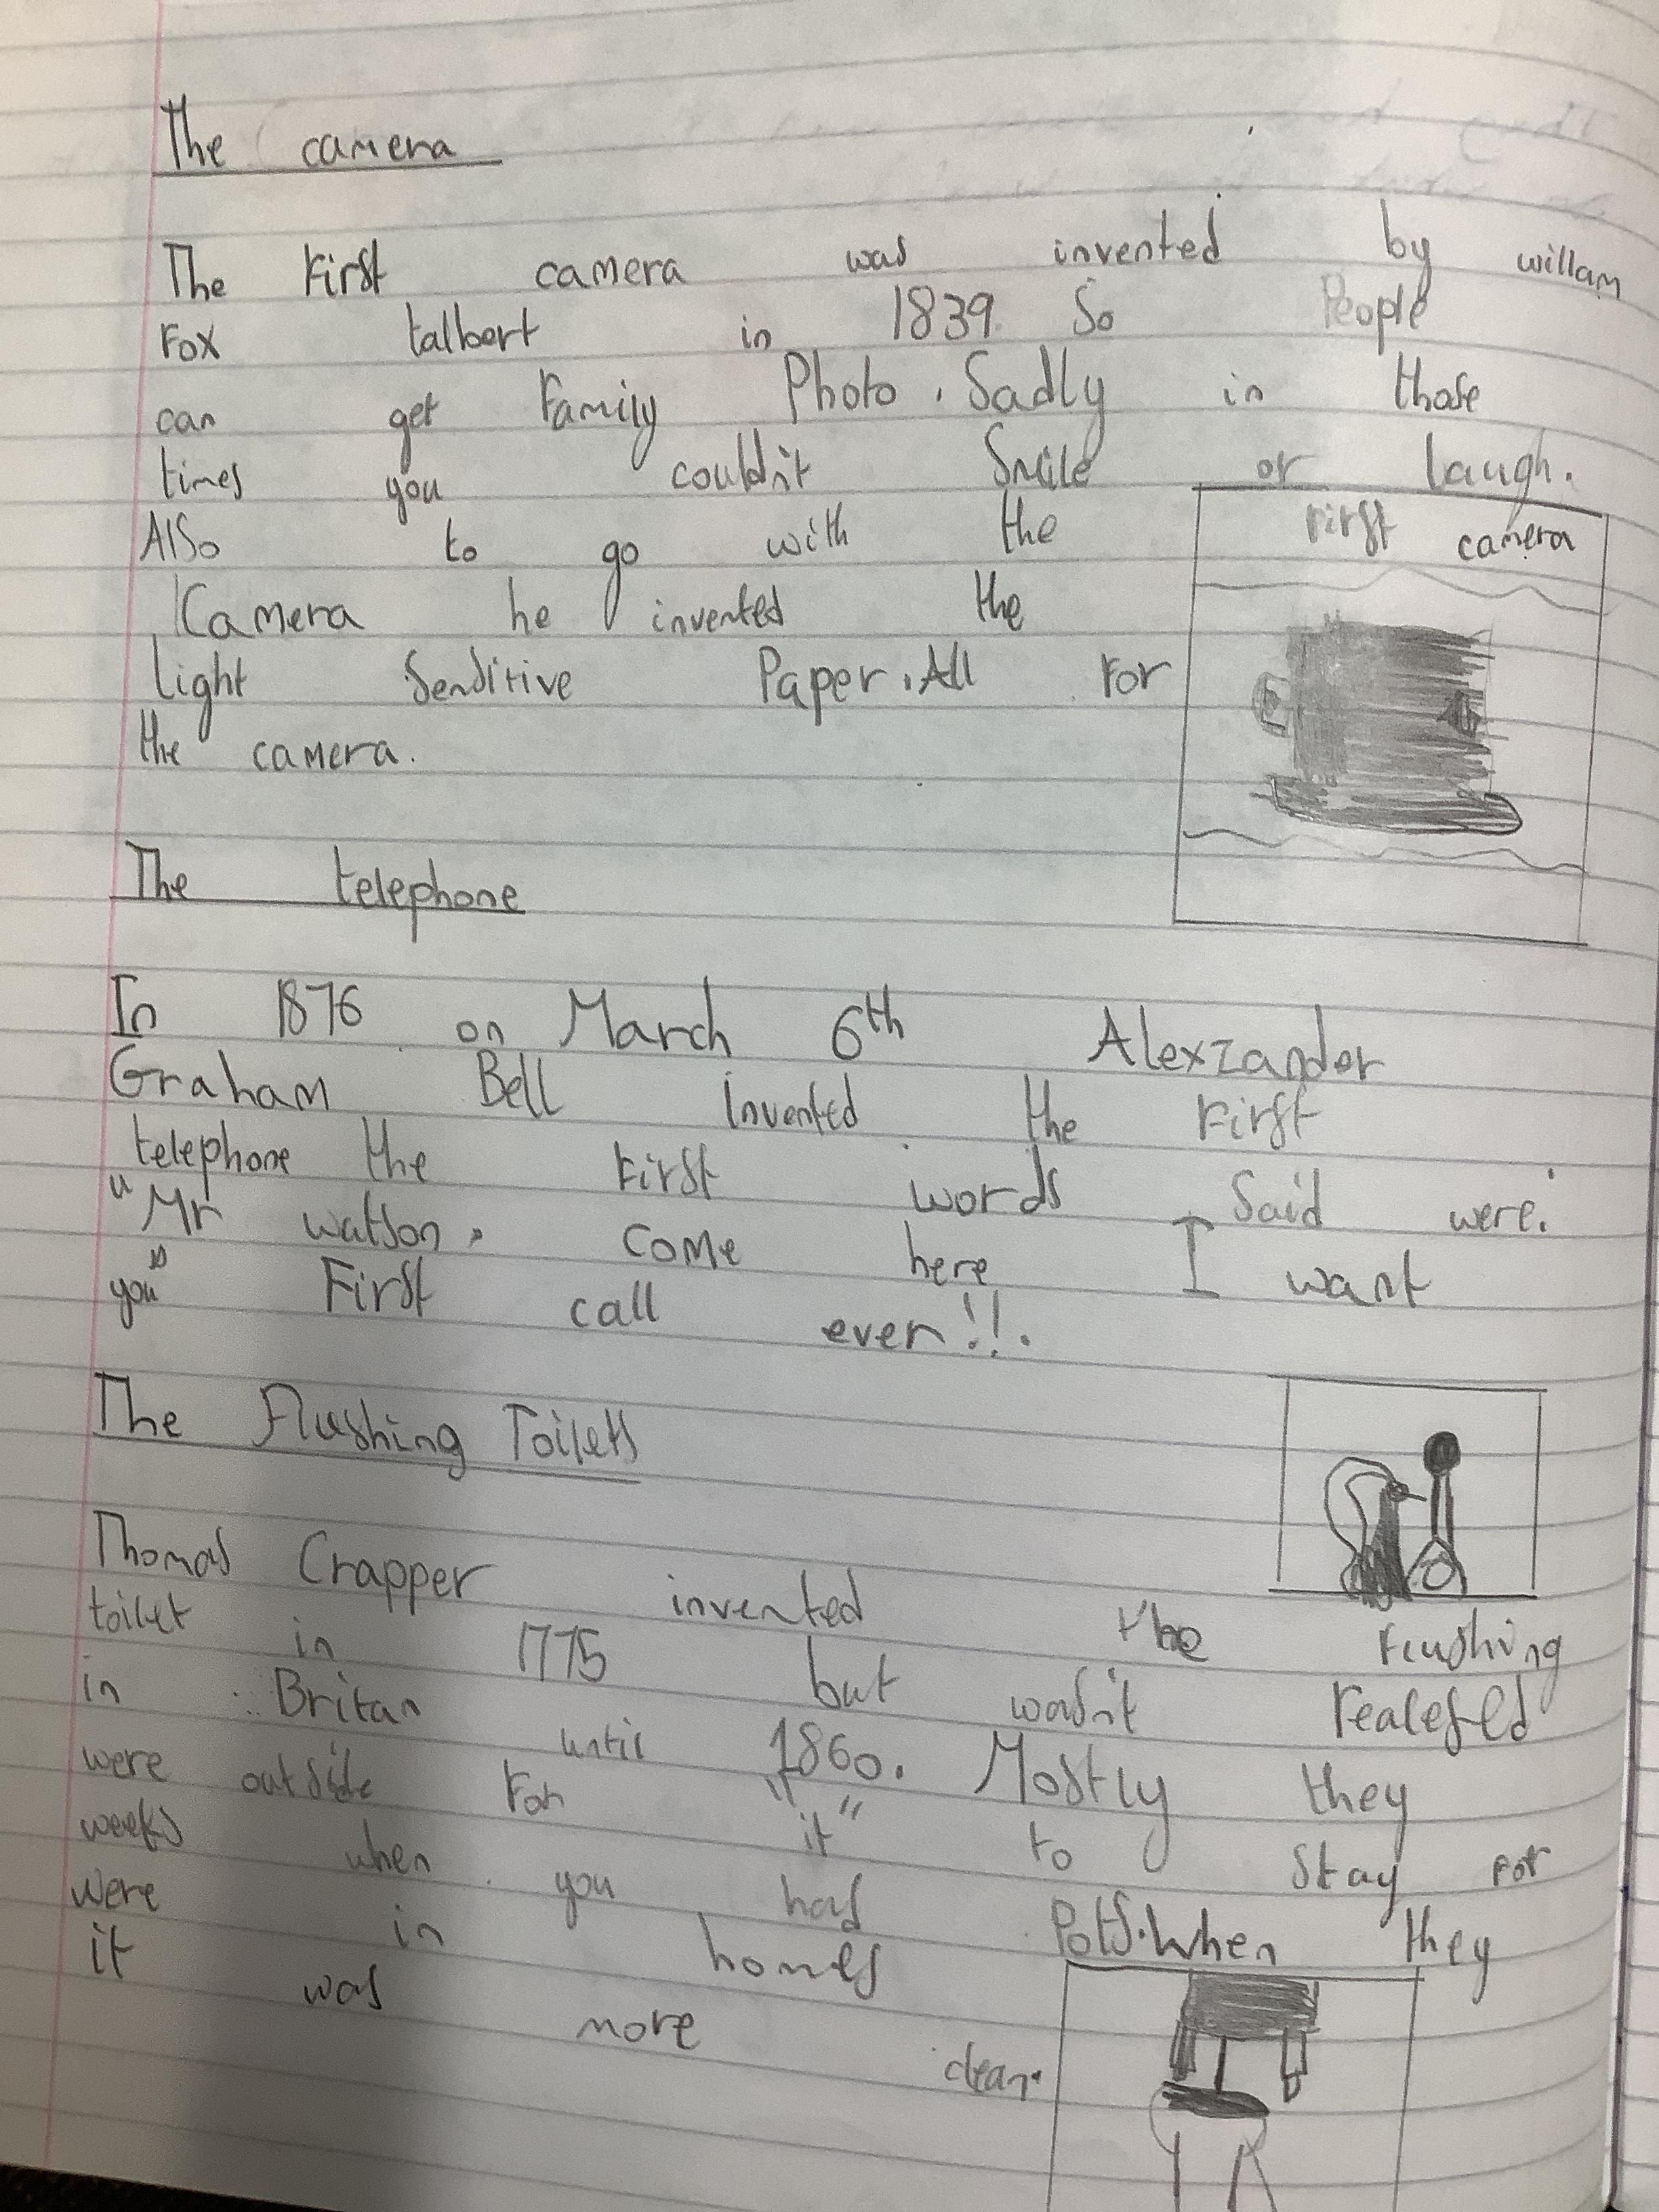 The camera
The First camera was invented by willam
Fox talbert in 1839. So People
can get Family Photo. Sadly in those
times you couldn't Smile or laugh.
AlSo to go with the
Camera he invented the
light Senditive Paper. All For
the camera.
First camera
The telephone
In 1876 on March 6th Alexzander
Graham Bell Invented the First
telephone the First words Said were:
"Mr watson, come here I want
you" First call ever!!.
The Flushing Toilets
Thomas Crapper invented the Flushing
toilet in 1775 but wasn't realesed
in Britan until 1860. Mostly they
were outside For "it" to Stay For
weeks when you had PotS. When they
were in homes
it was more clean.